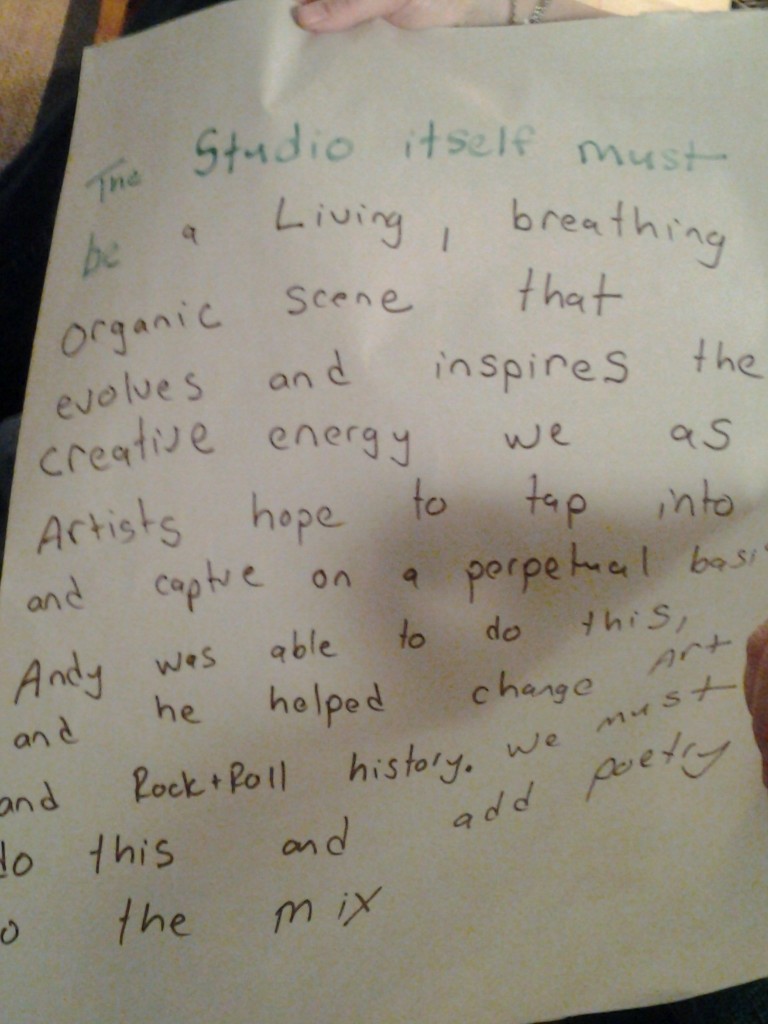 The Studio itself must
be a Living, breathing
organic scene that
evolves and inspires the
creative energy we as
Artists hope to tap into
and captve on a perpetual basi
Andy was able to do this,
and he helped change Art
and Rock+Roll history. we must
do this and add poetry
o the mix